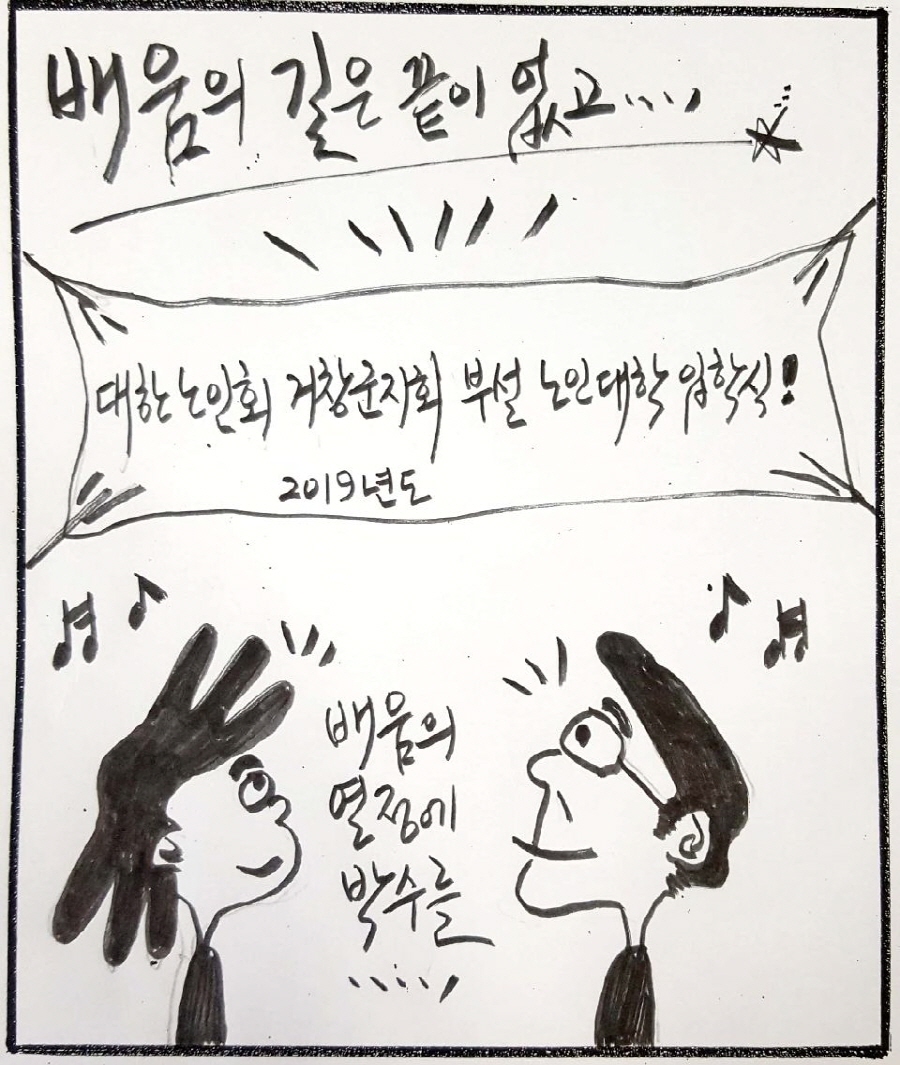 배움의 길은 끝이 없고....
대한노인회 거창군지회 부설 노인대학 입학식!
2019년도
배움의
열정에
박수를
.....